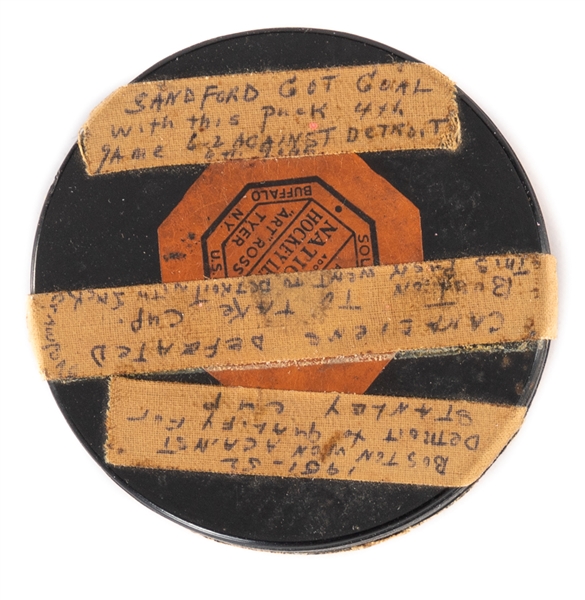 SANDFORD GOT GOAL
with this puck 4th
game 6-2 AGAINST DETROIT
SOL
BUFFALO
N.Y.
TYER
"ART" ROSS
HOCKEY LE
NATIO
U.S.
1951-52
BOSTON WON AGAINST
DETROIT to QUALIFY FOR
STANLEY CUP
CANADIENS DEFEATED
BOSTON TO TAKE CUP.
THIS WENT TO DETROIT WITH